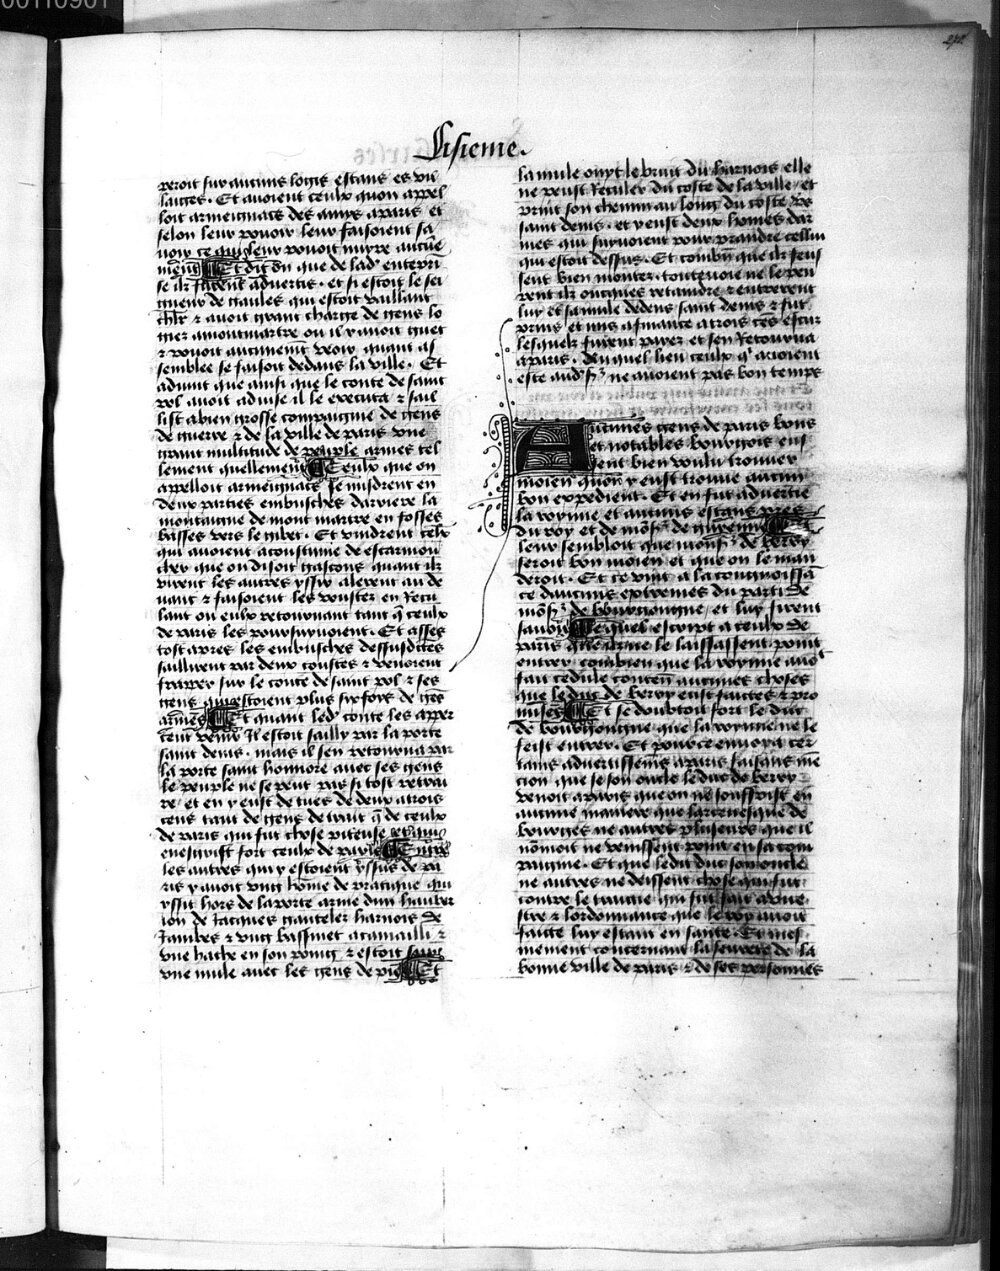 00110901
272
Sisieme.
peroit sur aucuns logis estans es vil
laiges. Et auoient ceulx quon appel
loit armeignacs des amys a paris et
selon leur pouoir leur faisoient sa
uoir ce quil leur pouoit nuyre aucune
ment Et dit on que de lad entrepri
se ilz furent aduertis. et si estoit le sei
gneur de gaules qui estoit vaillant
chlr & auoit grant charge de gens lo
gier a montmartre ou il y auoit guet
& pouoit aucunemt veoir quant as
semblee se faisoit dedans la ville. Et
aduint que ainsi que le conte de saint
pol auoit aduise il le executa & sail
list a bien grosse compaignie de gens
de guerre & de la ville de paris vne
grant multitude de peuple armes tel
lement quellement Ceulx que on
appelloit armeignacs se misdrent en
deux parties embusches darriere la
montaigne de mont martre en fosses
basses vers le gibet. Et vindrent ceulx
qui auoient acoustume de escarmou
cher que on disoit gascons quant ilz
virent les autres yssir alerent au de
uant & faisoient les rouster en recu
lant ou eulx retournant tant q ceulx
de paris les poursuyuoient. Et asses
tost apres les embusches dessusdites
saillirent par deux coustes & vindrent
frapper sur le conte de saint pol & ses
gens qui estoient plus six fois de gens
armes Et quant led conte les apper
ceut venir Il estoit sailly par la porte
saint denis. mais il sen retourna par
la porte saint honnore auec ses gens
le peuple ne se peut pas si tost retrai
re. et en y eust de tues de deux a trois
cens tant de gens de trait q de ceulx
de paris qui fut chose piteuse
fort ceulx de paris Entre
les autres qui y estoient yssus de pa
ris y auoit vng home de pratique qui
yssit hors de la porte arme dun hauber
ion de Jacques ganteler harnois de
Jambes & vng bassinet a camailli &
vne hache en son poing & estoit sur
vne mule auec les gens de pie Et
la mule ouyt le bruit du harnois elle
ne peust reculer du coste de la ville et
print son chemin au long du coste vers
saint denis. et y eust deux homes dar
mes qui suyuoient pour prandre cellui
qui estoit dessus. Et combn que ilz feus
sent bien montez. touteuoie ne le peu
rent ilz oncques retaindre & entrerent
luy et sa mule dedens saint denis & fut
prins et mis a finance a trois cens escuz
lesquelz furent payez et sen retourna
a paris. Duquel lieu ceulx q auoient
este aud ne auoient pas bon temps
Aucunes gens de paris bons
et notables bourgois eus
sent bien voulu trouuer
moien quon y eust trouue aucun
bon expedient. Et en fut aduertie
la royne et aucuns estans pres
du roy et de mons de guyenne Et
leur sembloit que mons de berry
seroit bon moien et que on le man
deroit. Et ce vint a la congnoissan
ce daucuns extremes du parti de
mons de bourgongne. et luy firent
sauoir Lequel escript a ceulx de
paris que ne le laissassent point
entrer combien que la royne auoit
fait cedule contenant aucunes choses
que le duc de berry eust faictes & pro
mises Et se doubtoit fort le duc
de bourgongne que la royne ne le
feist entrer. Et pource enuoya cer
tains aduertissemens a paris faisans men
cion que se son oncle le duc de berry
venoit a paris que on ne souffrist en
aucune maniere que larceuesque de
bourges ne autres plusieurs que il
nommoit ne venissent point en sa com
paignie. Et que ledit duc son oncle
ne autres ne deissent chose qui fut
contre le traictie qui fut fait
& lordonnance que le roy auoit
faicte luy estant en sante. Et mes
mement concernant la seurete de la
bonne ville de paris & de ses personnes